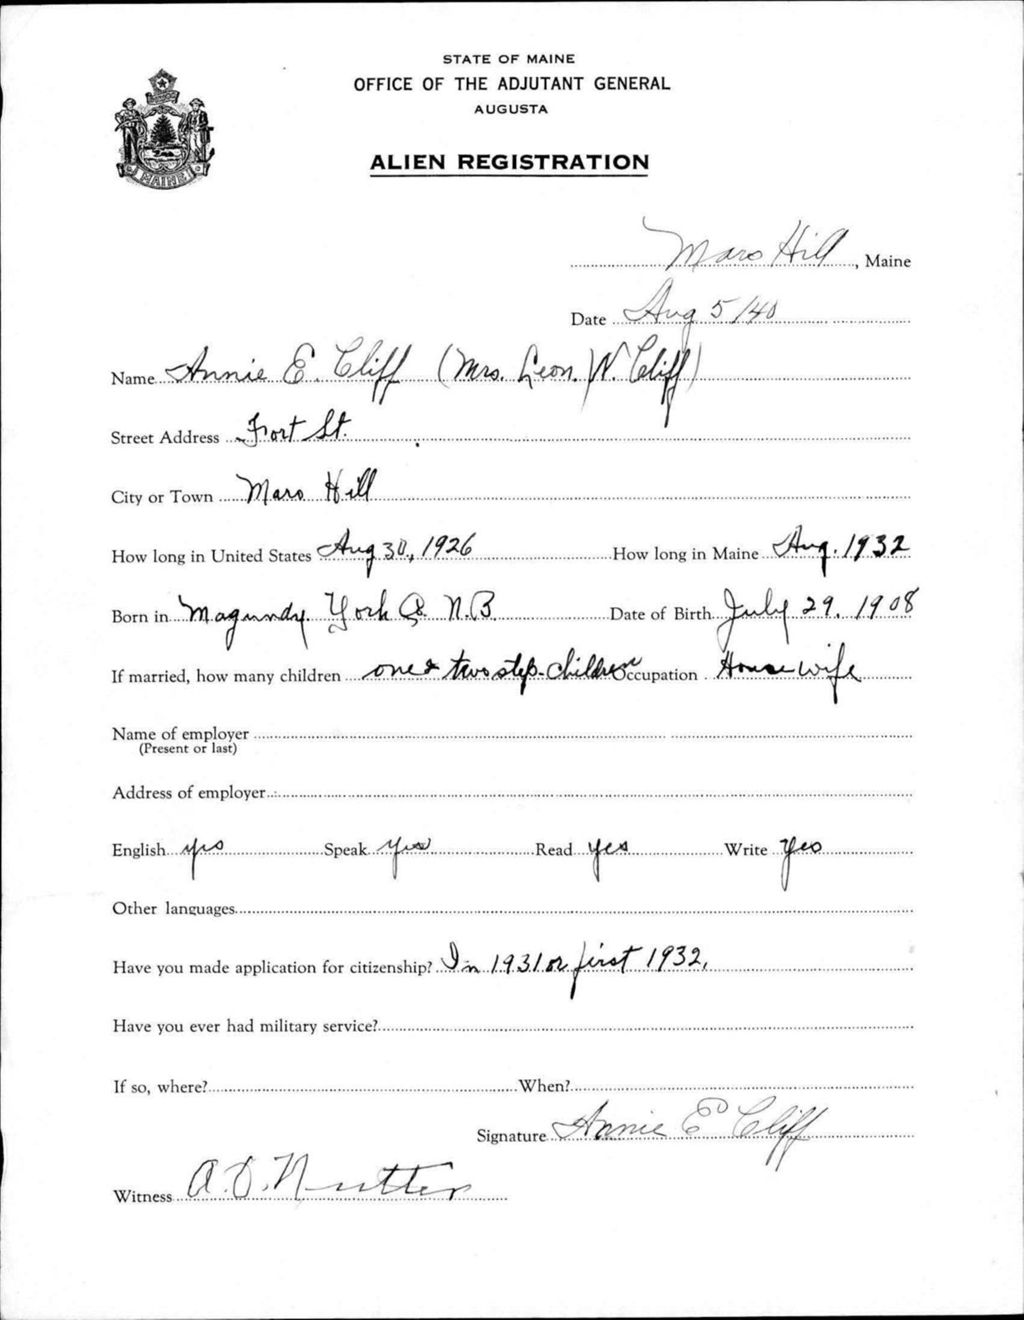 STATE OF MAINE
OFFICE OF THE ADJUTANT GENERAL
AUGUSTA
ALIEN REGISTRATION
MAINE
Mars Hill, Maine
Date Aug 5/40
Name Annie E. Cliff (Mrs. Leon. W. Cliff)
Street Address Fort St.
City or Town Mars Hill
How long in United States Aug 30, 1926 How long in Maine Aug. 1932
Born in Magundy. York Co. N.B. Date of Birth July 29, 1908
If married, how many children one & two step-children Occupation Housewife
Name of employer
(Present or last)
Address of employer
English yes Speak yes Read yes Write yes
Other languages
Have you made application for citizenship? In 1931 or first 1932.
Have you ever had military service?
If so, where? When?
Signature Annie E Cliff
Witness A. D. Nutter